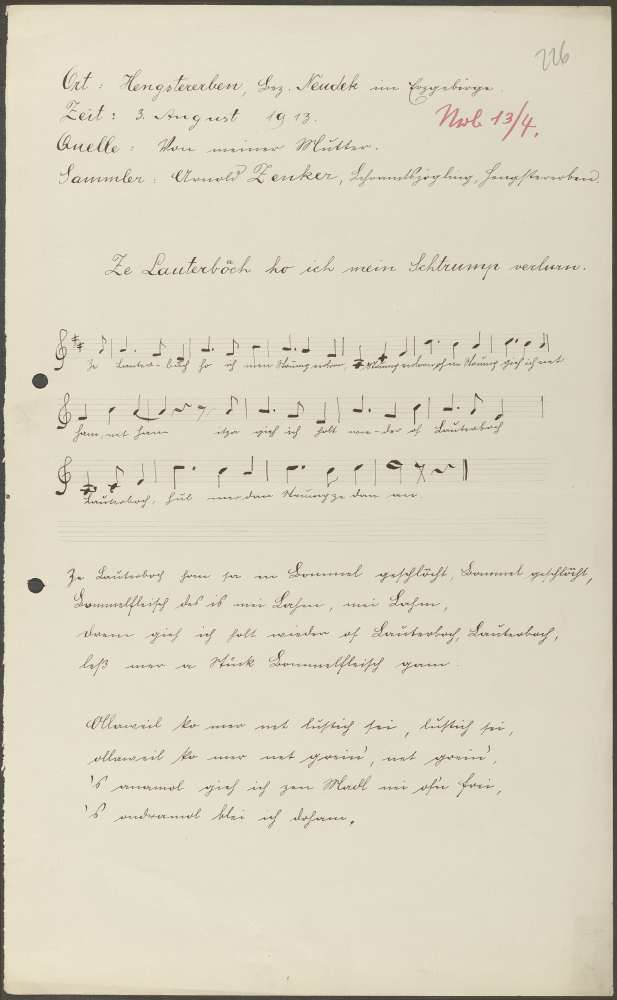 226
Ort: Hengstererben, Bez. Neudek im Erzgebirge.
Zeit: 3. August 1913.
Nwb 13/4.
Quelle: Von meiner Mutter.
Sammler: Arnold Zenker, Lehramtszögling, Hengstererben.
Ze Lauterböch ho ich mein Schtrump verlurn.
Ze Lauter-bach ho ich mein Strump verlorn, Strump gieh ich net
ham, net ham itza gieh ich holt wie-der of Lauterboch
Lauterboch, hul mer dan Strump ze dan an.
Ze Lauterboch hom sa en Bommel geschlöcht, Bommel geschlöcht,
Bommelfleisch des is mei Lahm, mei Lahm,
Drem gieh ich holt wieder of Lauterboch, Lauterboch,
leß mer a Stück Bommelfleisch gam.
Ollaweil ko mer net lustich sei, lustich sei,
ollaweil ko mer net grein', net grein',
's anamol gieh ich zen Madl nei of'n frei,
's andramol blei ich doham.